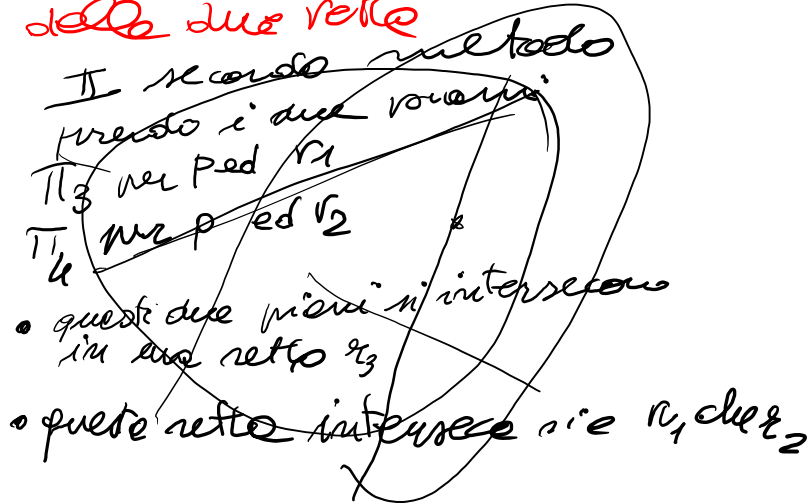 delle due rette
II secondo metodo
prendo i due piani
π3 per p ed r1
π4 per p ed r2
• questi due piani si intersecano
in una retta r3
• questa retta interseca sia r1 che r2